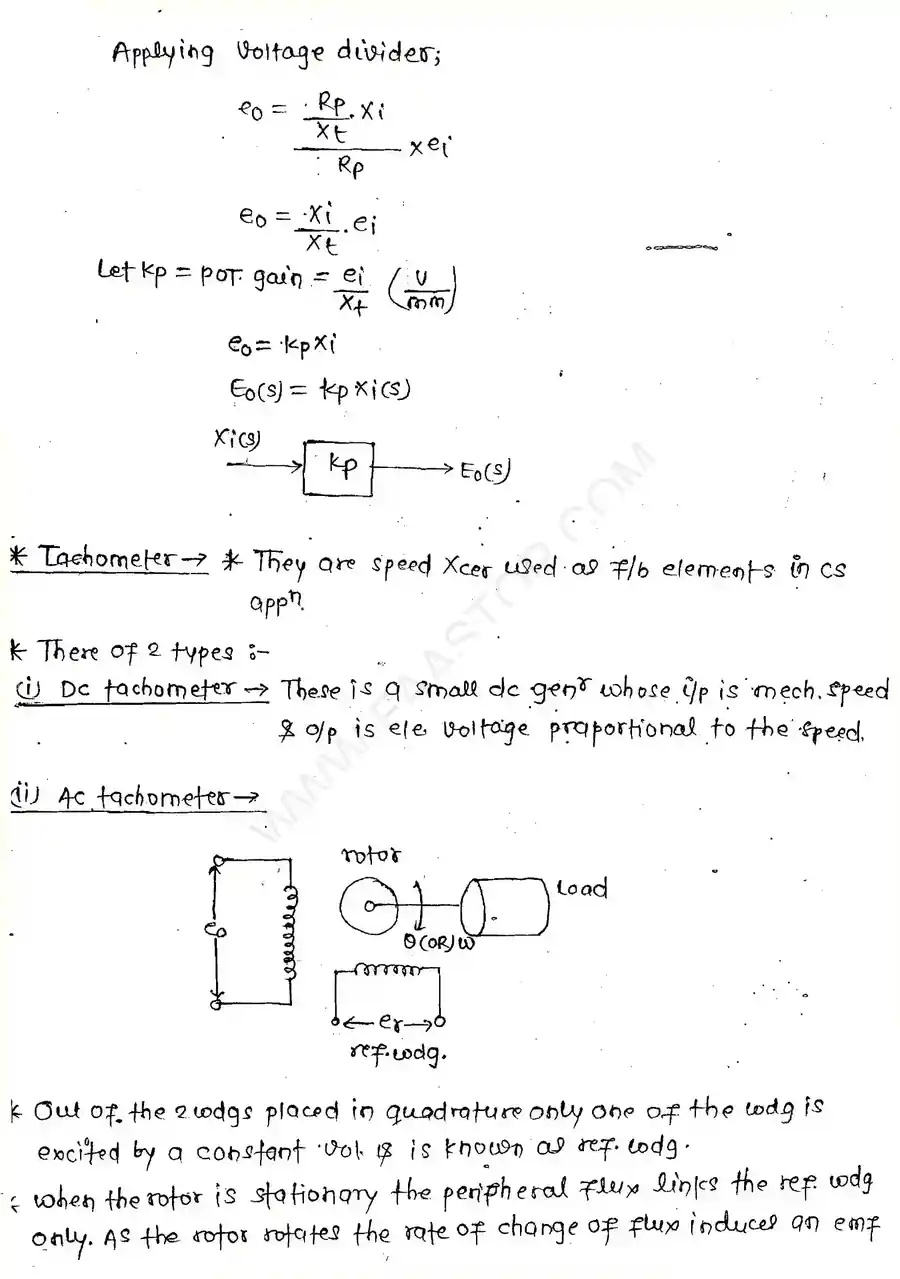 Applying Voltage divider;
eo = Rp/Xt . Xi / Rp × ei
eo = Xi/Xt . ei
Let Kp = POT. gain = ei/Xt (V/mm)
eo = Kp Xi
Eo(s) = Kp Xi(s)
Xi(s)
Kp → Eo(s)
* Tachometer → * They are speed Xcer used as f/b elements in CS
appⁿ.
* There of 2 types :-
(i) Dc tachometer → These is a small dc genʳ whose i/p is mech. speed
& o/p is ele voltage proportional to the speed.
(ii) Ac tachometer →
rotor
Load
eo
θ(OR)ω
← er →
ref. wdg.
* Out of the 2 wdgs placed in quadrature only one of the wdg is
excited by a constant vol. & is known as ref. wdg.
* when the rotor is stationary the peripheral flux links the ref. wdg
only. As the rotor rotates the rate of change of flux induces an emf